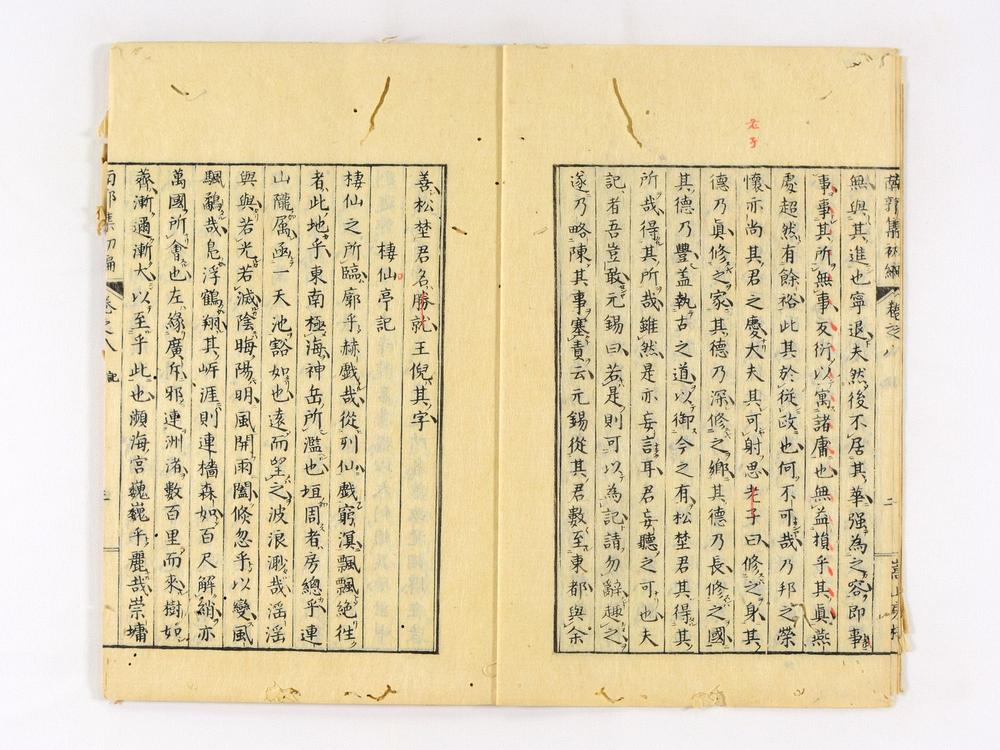 老子
無與其進也寧退夫然後不居其華强為之容即事
事事其所無事友衍以寓諸庸也無益損乎其眞燕
處超然有餘裕此其於從政也何不可哉乃邦之榮
懷亦尚其君之慶大夫其可射思老子曰修之身其
德乃眞修之家其德乃深修之鄉其德乃長修之國
其德乃豐蓋執古之道以御今之有松埜君其得其
所哉得其所哉雖然是亦妄言耳君妄聽之可也夫
記者吾豈敢元錫曰若是則可以為記請勿辭趣之
遂乃略陳其事塞責云元錫從其君數至東都與余
善松埜君名勝就王倪其字
棲仙亭記
棲仙之所臨廓乎赫戲哉從列仙戲窮溟飄飄絶徃
者此地乎東南極海神岳所濫也垣周者房總乎連
山隴属凾一天池豁如也遠而望之波浪渺哉滛滛
與與若光若滅陰晦陽明風開雨闔倐忽乎以變風
颿鷁哉鳬浮鶴翔其㟁涯則連檣森如百尺解綃亦
萬國所會也左緣廣斥邪連洲渚數百里而來樹如
薺漸邇漸大以至乎此也瀕海宮巍巍乎麗哉崇墉
南郭集初編 卷之八 記